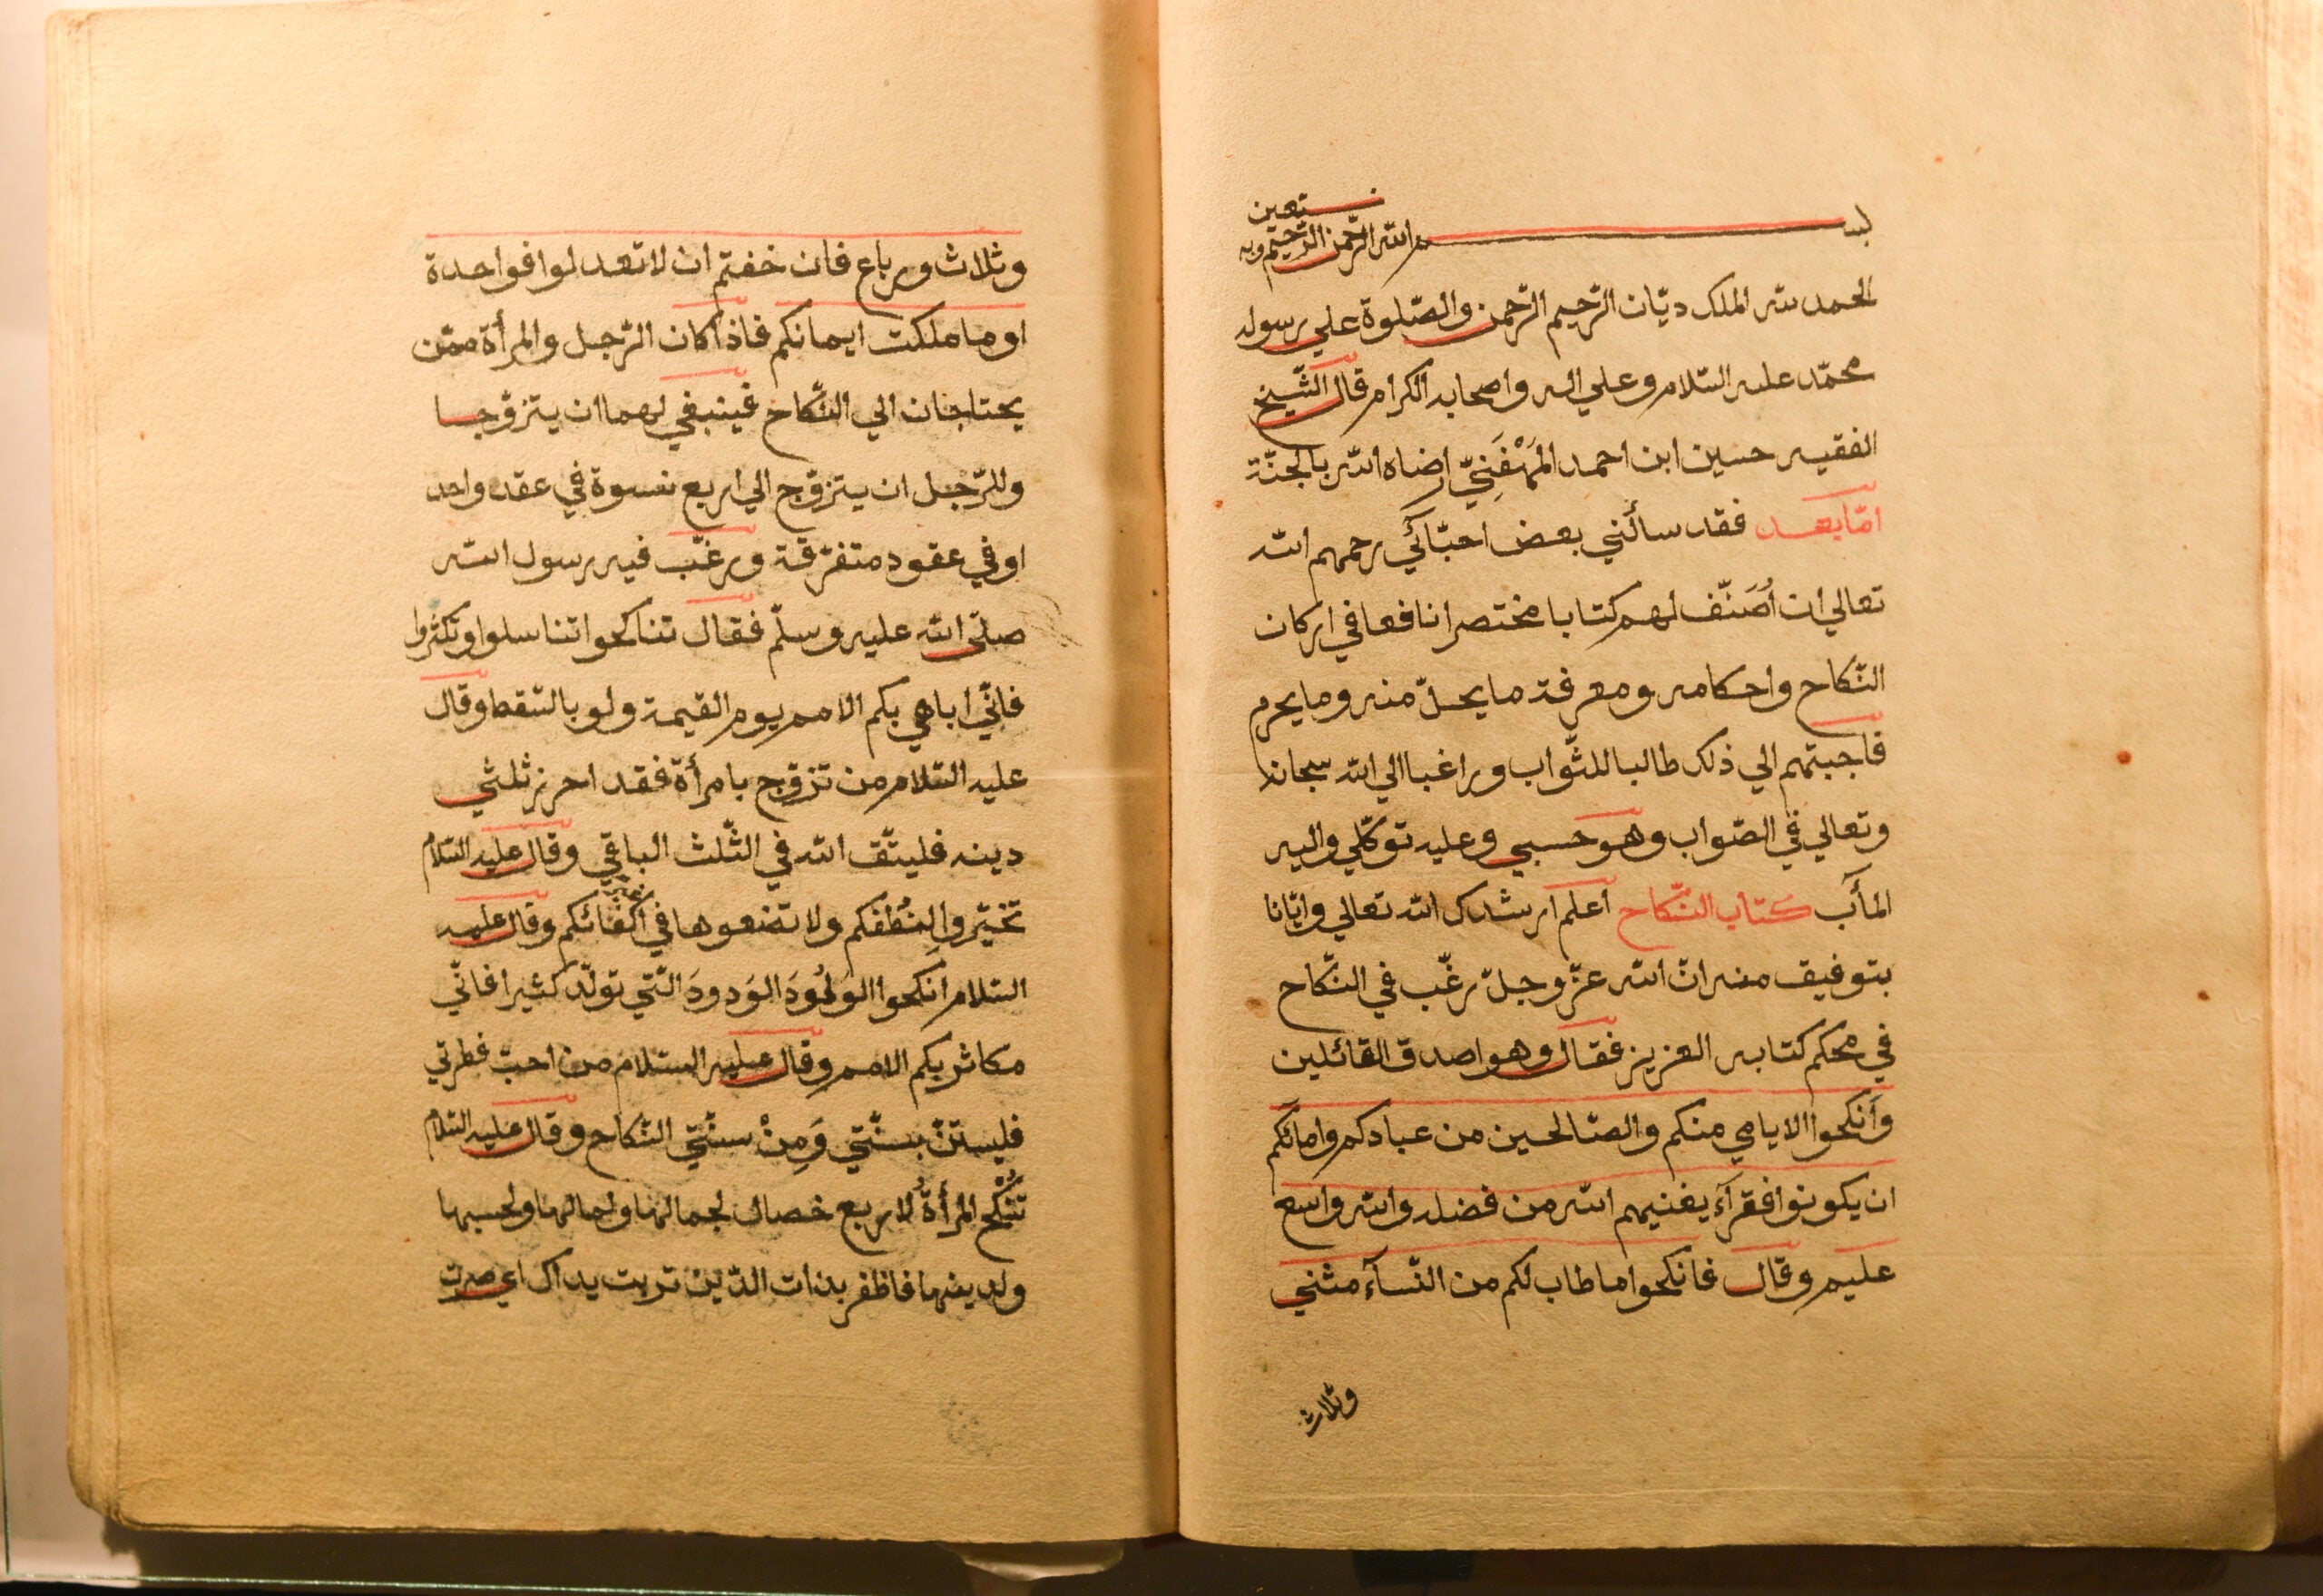 بسم الله الرّحمن الرّحيم وبه نستعين
الحمد لله الملك ديّان الرّحيم الرّحمن والصّلوة علي رسوله
محمّد عليه السّلام وعلي اله واصحابه الكرام قال الشّيخ
الفقيه حسين ابن احمد المَهْفَنِيّ ارضاه الله بالجنّة
امّا بعد فقد سألني بعض احبّائي رحمهم الله
تعالي ان اُصَنّف لهم كتابا مختصرا نافعا في اركان
النّكاح واحكامه ومعرفة ما يحلّ منه وما يحرم
فاجبتهم الي ذلك طالبا للثّواب وراغبا الي الله سبحانه
وتعالي في الصّواب وهو حسبي وعليه توكّلي واليه
المأب كتاب النّكاح أعلم ارشدك الله تعالي وايّانا
بتوفيق منه انّ الله عزّ وجلّ رغّب في النّكاح
في محكم كتابه العزيز فقال وهو اصدق القائلين
وَأنكحوا الايامي منكم والصّالحين من عبادكم وامائكم
ان يكونوا فقرآءَ يغنيهم الله من فضله والله واسع
عليم وقال فانكحوا ما طاب لكم من النّسآء مثني
وثلاث
وثلاث ورباع فان خفتم ان لا تعدلوا فواحدة
او ما ملكت ايمانكم فاذا كان الرّجل والمرأة ممّن
يحتاجان الي النّكاح فينبغي لهما ان يتزوّجا
وللرّجل ان يتزوّج الي اربع نسوة في عقد واحد
او في عقود متفرّقة ورغّب فيه رسول الله
صلّي الله عليه وسلّم فقال تناكحوا تناسلوا وتكثروا
فانّي اباهي بكم الامم يوم القيمة ولو بالسّقط وقال
عليه السّلام من تزوّج بامرأة فقد احرز ثلثي
دينه فليتّق الله في الثّلث الباقي وقال عليه السّلام
تخيّروا لِنُطَفكم ولا تضعوها في غير اكفائكم وقال عليه
السّلام اَنكحوا الوَلُودَ الوَدودَ الّتي تولّد كثيرا فانّي
مكاثر بكم الامم وقال عليه السّلام من احبّ فطرتي
فليستنّ بسنّتي وَمِنْ سنّتي النّكاح وقال عليه السّلام
تُنْكَح المرأةُ لاربع خصال لجمالها ولمالها ولحسبها
ولدينها فاظفر بذات الدّين تربت يداك اي صرت